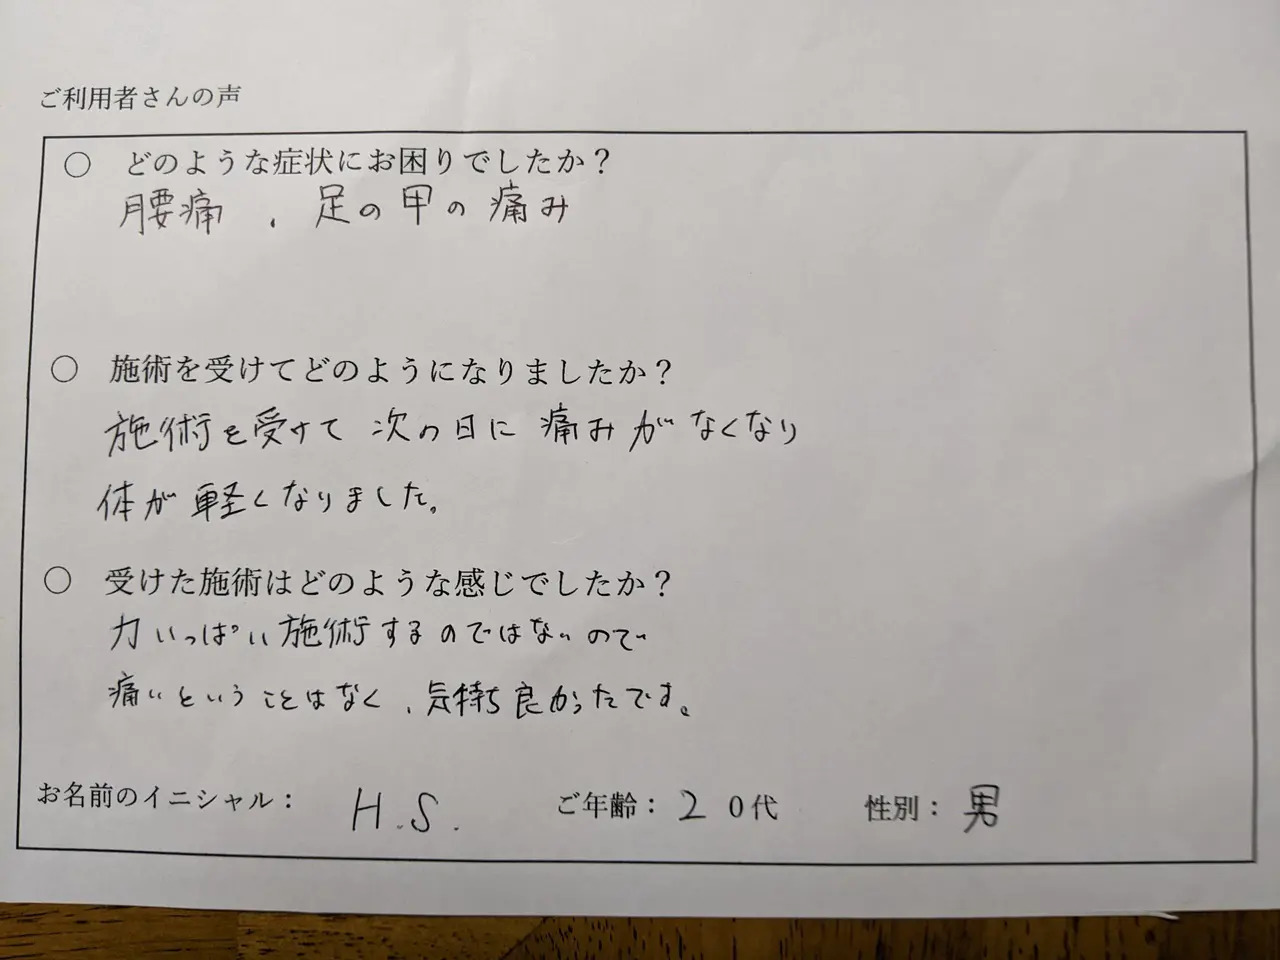 ご利用者さんの声
○ どのような症状にお困りでしたか？
腰痛、足の甲の痛み
○ 施術を受けてどのようになりましたか？
施術を受けて次の日に痛みがなくなり
体が軽くなりました。
○ 受けた施術はどのような感じでしたか？
力いっぱい施術するのではないので
痛いということはなく、気持ち良かったです。
お名前のイニシャル： H.S. ご年齢：20代 性別：男